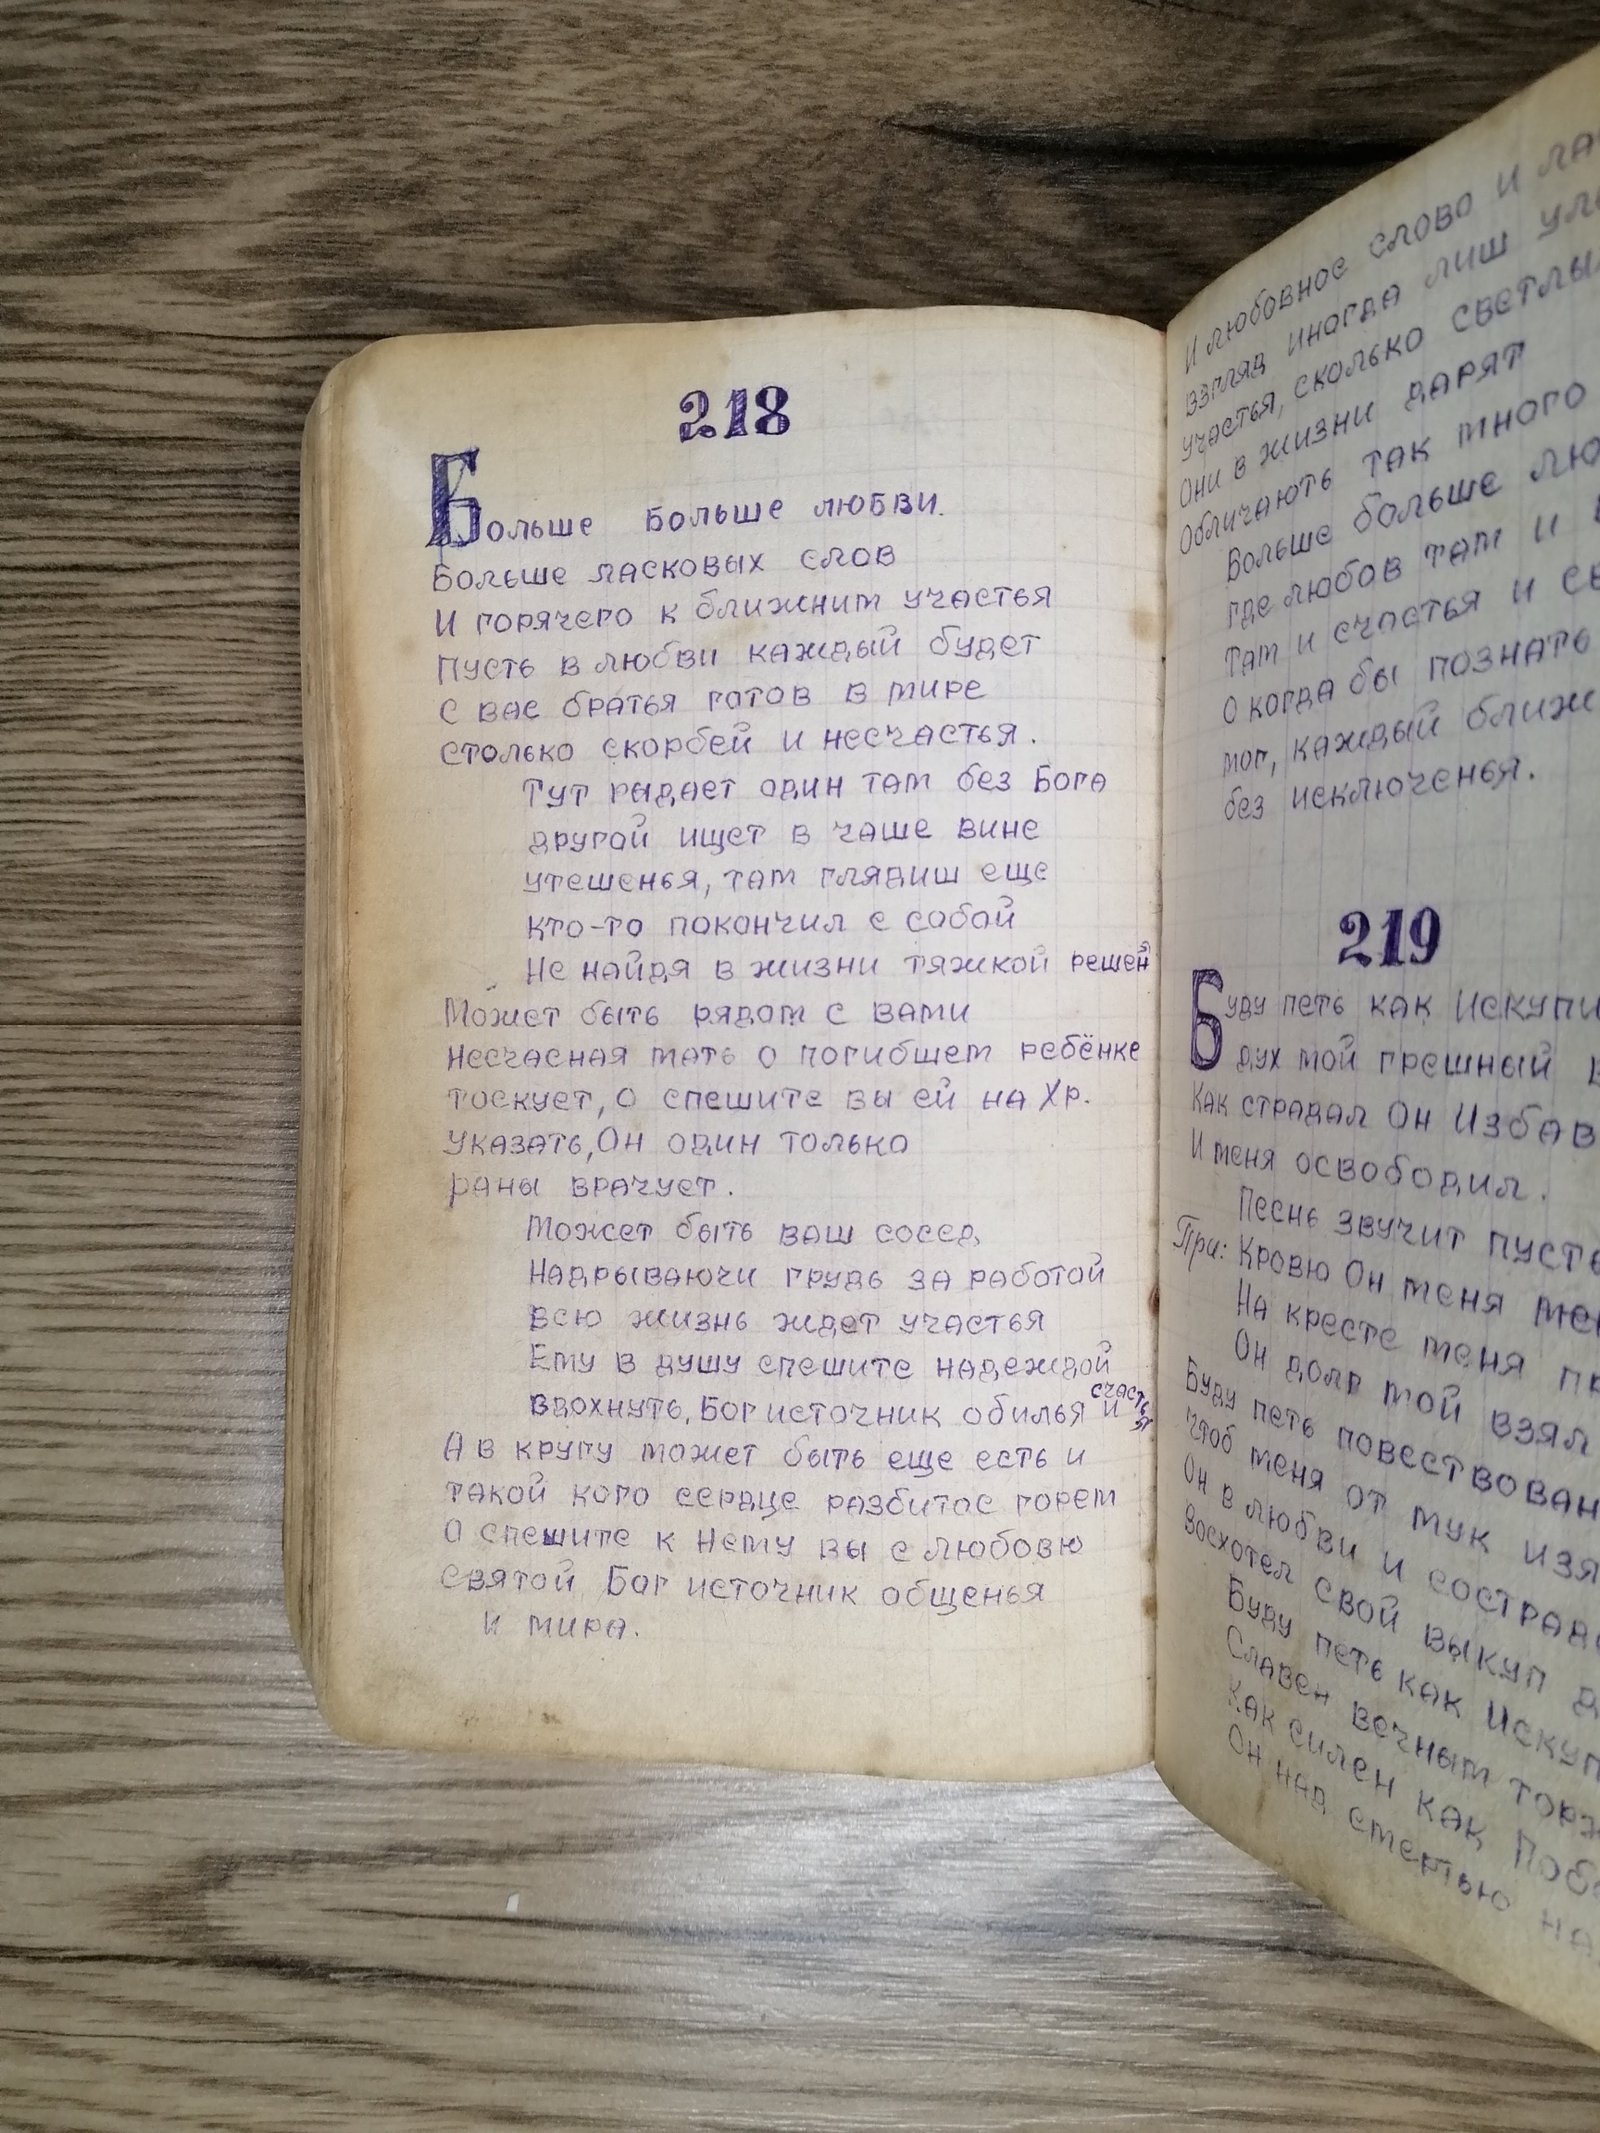 218
Больше больше любви.
Больше ласковых слов
И горячего к ближним участья
Пусть в любви каждый будет
с вас братья готов в мире
столько скорбей и несчастья.
Тут рыдает один там без Бога
другой ищет в чаше вине
утешенья, там глядиш еще
кто-то покончил с собой
Не найдя в жизни тяжкой решен
Может быть рядом с вами
несчасная мать о погибшем ребёнке
тоскует, о спешите вы ей на Хр.
указать, Он один только
раны врачует.
Может быть ваш сосед,
Надрываючи грудь за работой
всю жизнь ждет участья
Ему в душу спешите надеждой
вдохнуть, Бог источник обилья и счастья
А в кругу может быть еще есть и
такой кого сердце разбитое горем
О спешите к Нему вы с любовю
святой Бог источник общенья
и мира.
И любовное слово и
взгляд иногда лиш
участья, сколько
Они в жизни дарят
Обличають так много
Больше больше
где любов там и
Там и счастья и
О когда бы познать
мог, каждый
без исключенья.
219
Буду петь как
дух мой грешный
Как страдал Он
И меня освободил.
Песнь звучит
При: Кровю Он меня
На кресте меня
Он долг мой взял
Буду петь
Чтоб меня от мук
Он в любви и
Восхотел свой выкуп
Буду петь как
Славен вечным
Как силен как
Он над смертью